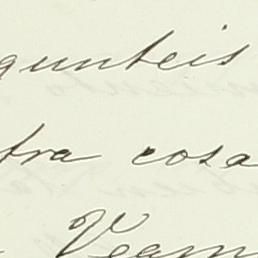 gunteis
tra cosa
Veam